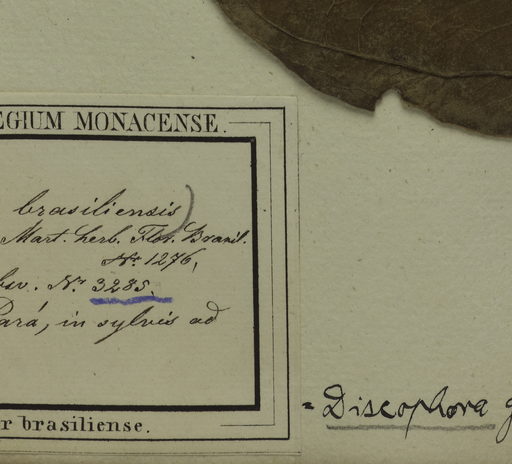 EGIUM MONACENSE.
brasiliensis)
Mart. herb. Flor. Brasil.
Nr. 1276,
bsv. Nr. 3285.
Pará, in sylvis ad
r brasiliense.
= Discophora g